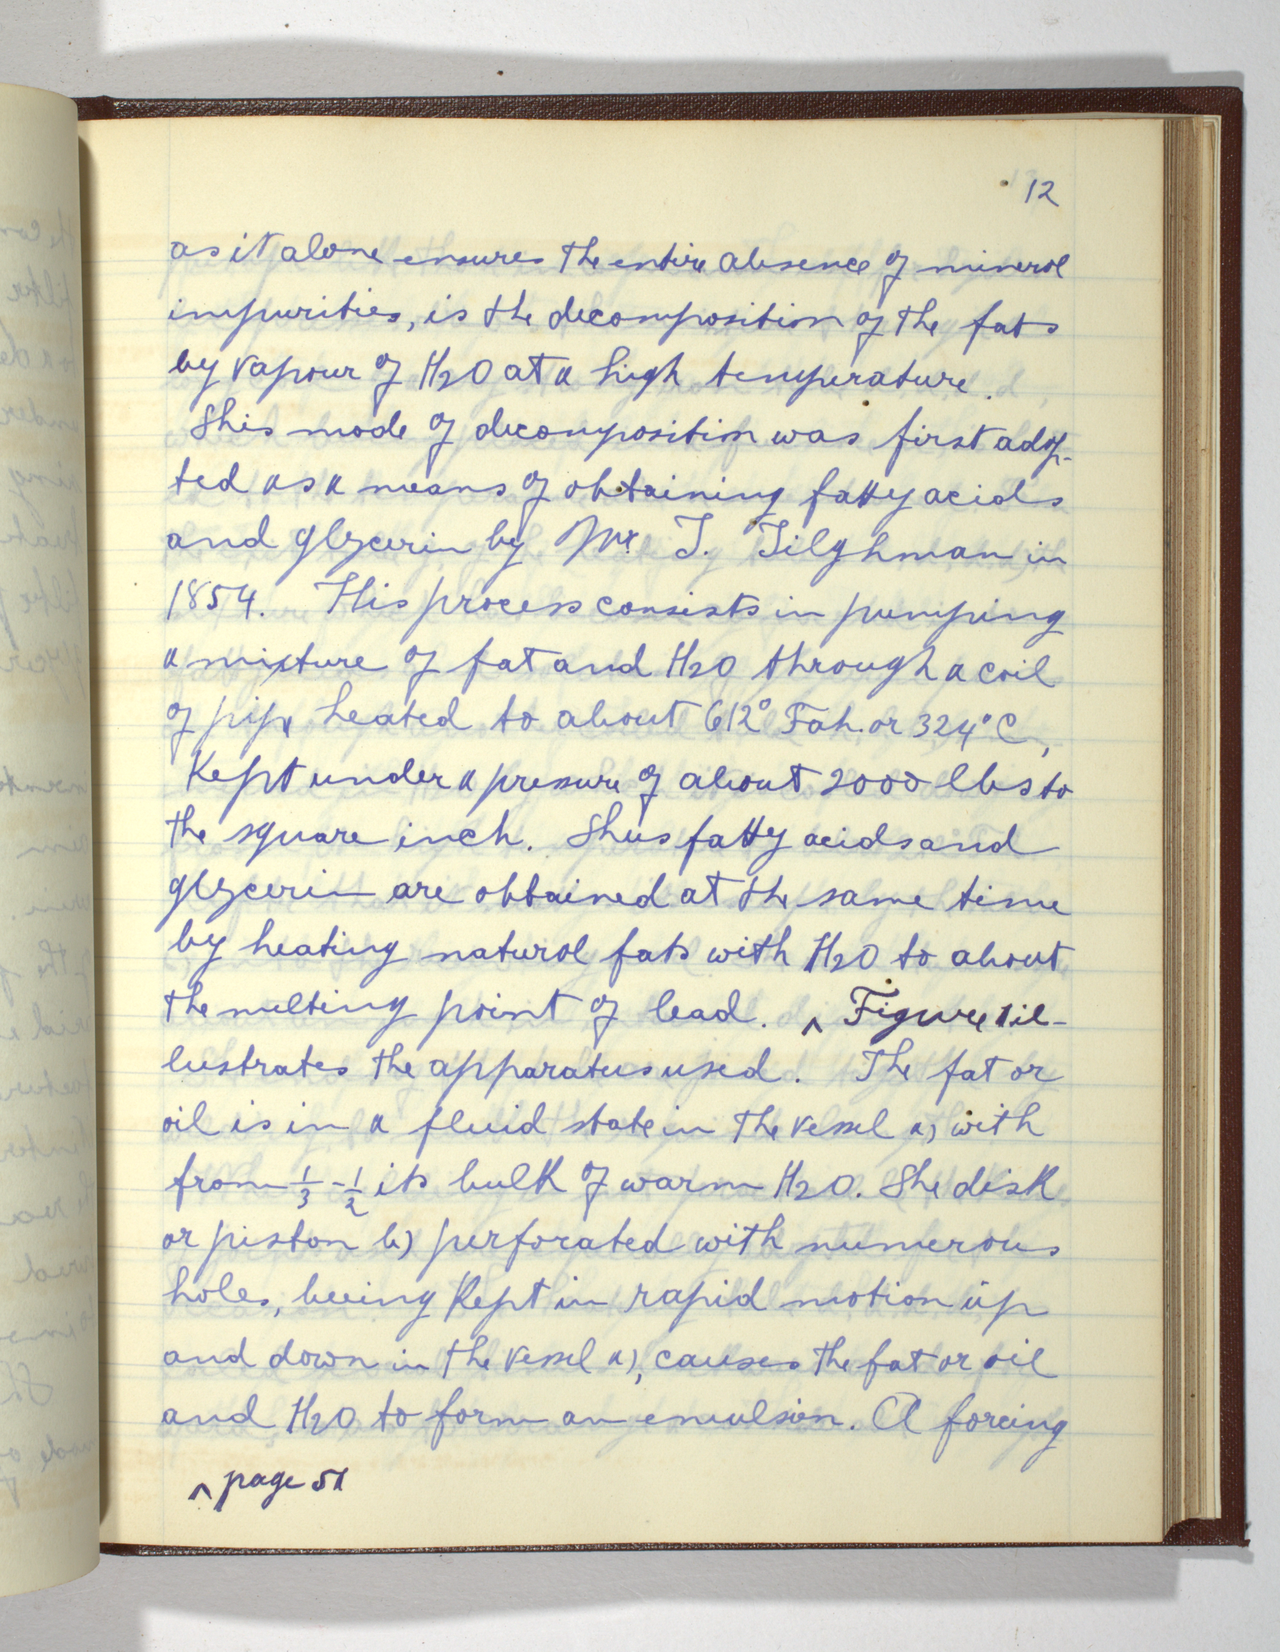 12
as it alone ensures the entire absence of mineral
impurities, is the decomposition of the fats
by vapour of H2O at a high temperature.
This mode of decomposition was first adop-
ted as a means of obtaining fatty acids
and glycerin by Mr T. Tilghman in
1854. His process consists in pumping
a mixture of fat and H2O through a coil
of pipe heated to about 612° Fah. or 324° C,
Kept under a pressure of about 2000 lbs to
the square inch. Thus fatty acids and
glycerin are obtained at the same time
by heating natural fats with H2O to about
the melting point of lead. ^ Figure 1 il-
lustrates the apparatus used. The fat or
oil is in a fluid state in the vessel a) with
from 1/3 - 1/2 its bulk of warm H2O. The disk
or piston b) perforated with numerous
holes, being Kept in rapid motion up
and down in the vessel a), causes the fat or oil
and H2O to form an emulsion. A forcing
^ page 51